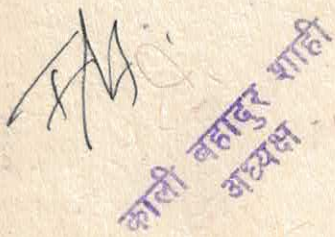 काली बहादुर शाही
अध्यक्ष